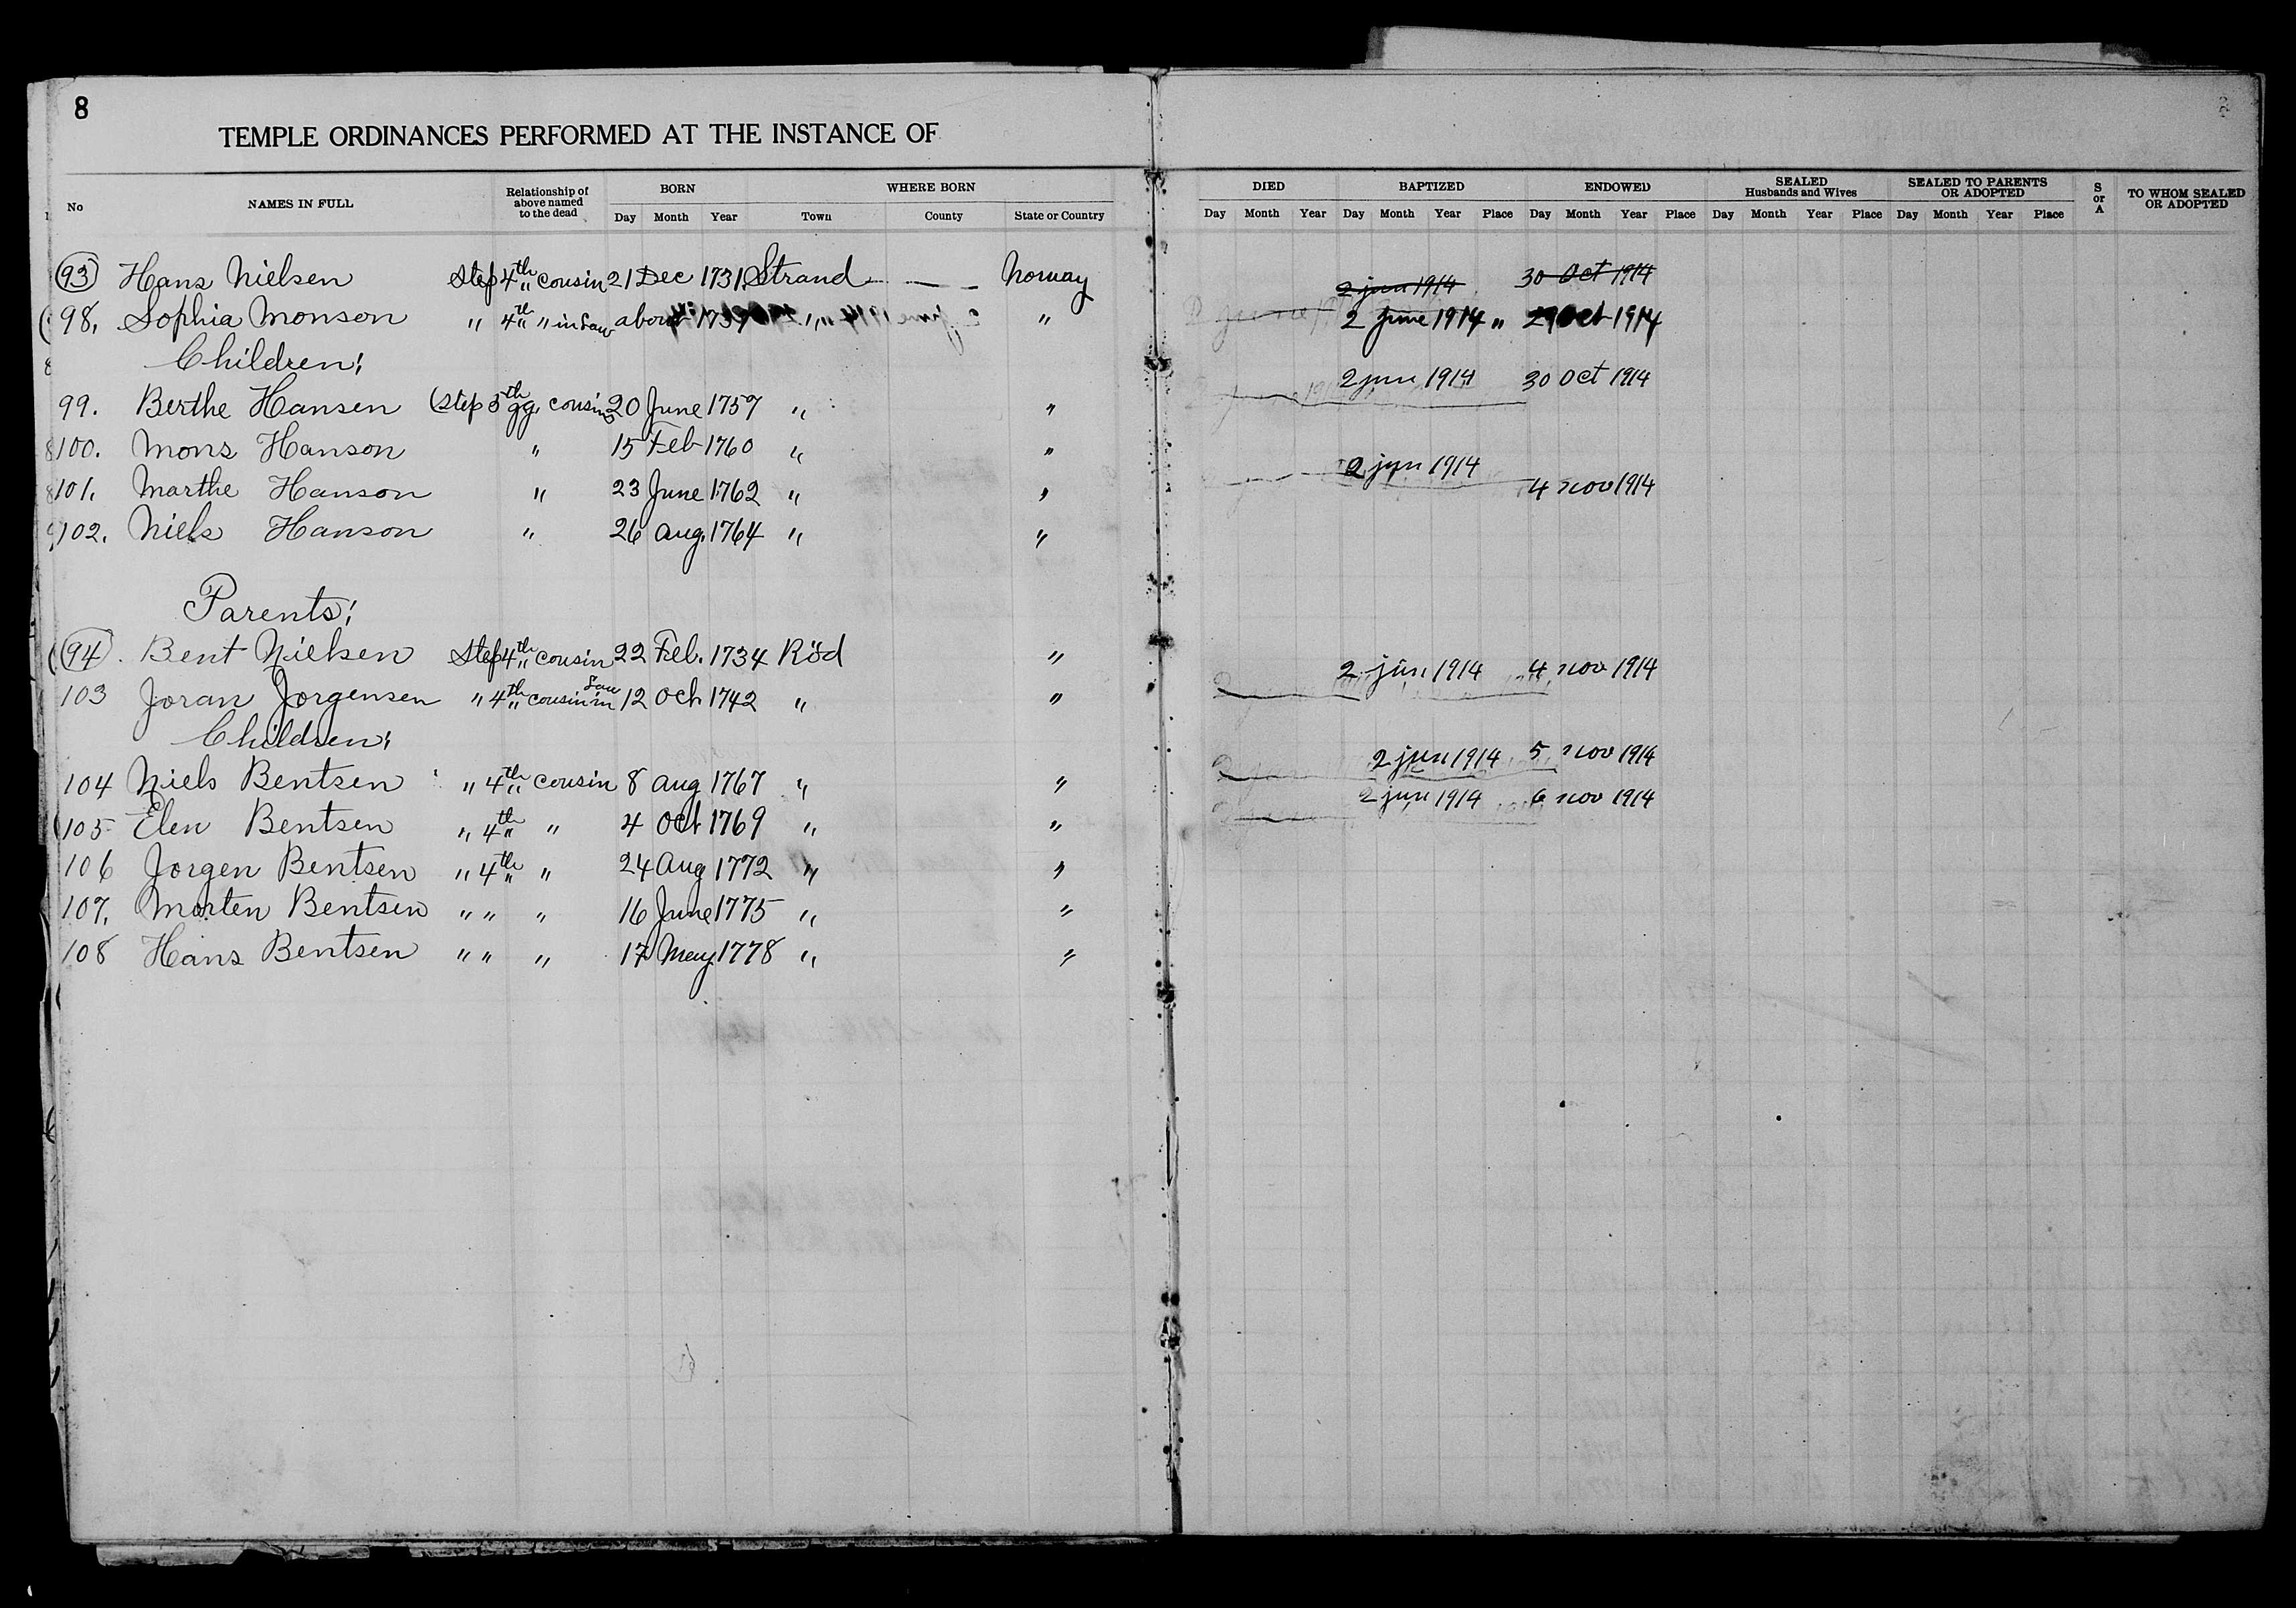 8
TEMPLE ORDINANCES PERFORMED AT THE INSTANCE OF
No NAMES IN FULL Relationship of above named to the dead BORN Day Month Year WHERE BORN Town County State or Country DIED Day Month Year BAPTIZED Day Month Year Place ENDOWED Day Month Year Place SEALED Husbands and Wives Day Month Year Place SEALED TO PARENTS OR ADOPTED Day Month Year Place S or A TO WHOM SEALED OR ADOPTED
93 Hans Nielsen Step 4th cousin 21 Dec 1731 Strand — — Norway 2 jun 1914 30 Oct 1914
98. Sophia Monson " 4th " in Law about 1739 " " 2 June 1914 " 29 Oct 1914
Children:
2 jun 1914 30 Oct 1914
99. Berthe Hansen (Step 5th gg. cousins 20 June 1757 " "
100. Mons Hanson " 15 Feb 1760 " "
2 jun 1914
101. Marthe Hanson " 23 June 1762 " " 4 nov 1914
102. Niels Hanson " 26 Aug. 1764 " "
Parents:
94. Bent Nielsen Step 4th cousin 22 Feb. 1734 Röd " 2 jun 1914 4 nov 1914
103 Joran Jorgensen " 4th cousin in Law 12 Oct 1742 " "
Children:
2 jun 1914 5 nov 1914
104 Niels Bentsen " 4th cousin 8 Aug 1767 " "
2 jun 1914 6 nov 1914
105 Elen Bentsen " 4th " 4 Oct 1769 " "
106 Jorgen Bentsen " 4th " 24 Aug 1772 " "
107. Morten Bentsen " " " 16 June 1775 " "
108 Hans Bentsen " " " 17 May 1778 " "